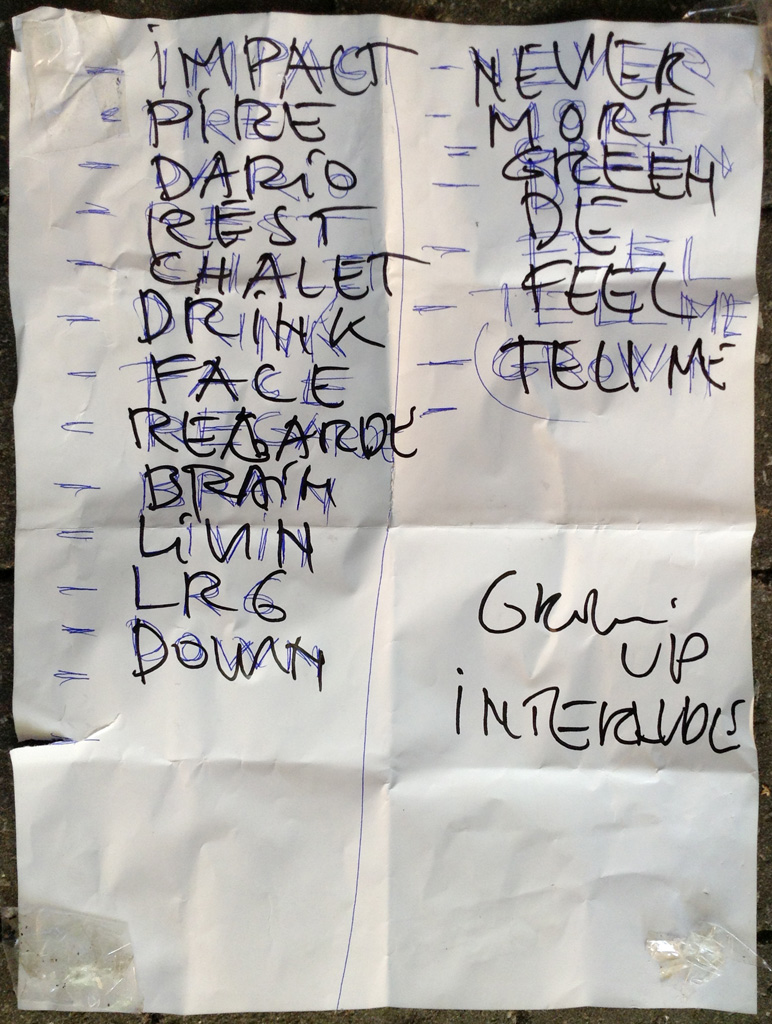 IMPACT
PIRE
DARIO
REST
CHALET
DRINK
FACE
REGARDE
BRAIN
LIVIN
LR6
DOWN
NEVER
MORT
GREEN
DE
FEEL
TELL ME
UP
INTERLUDE